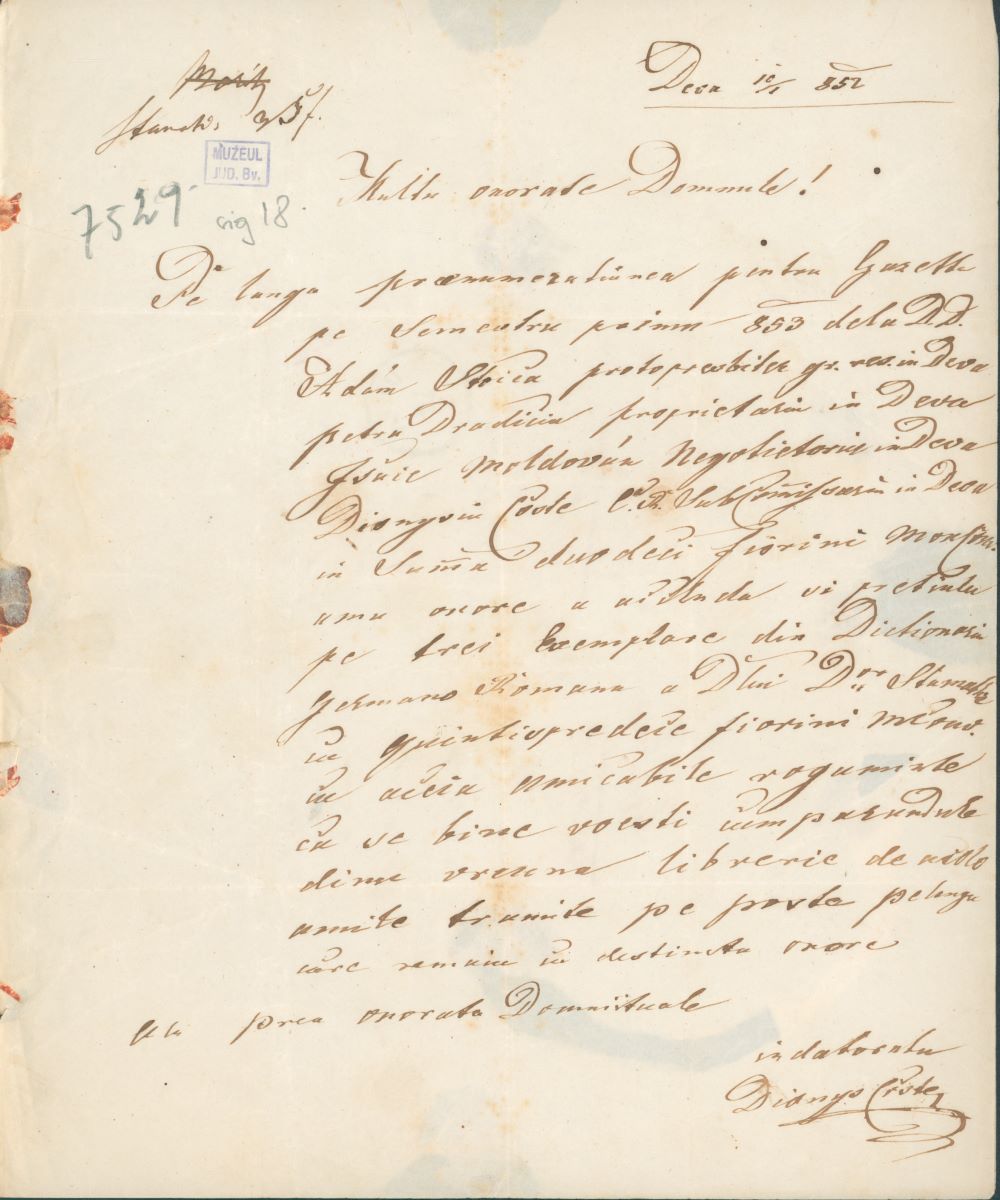 Deva 10/1 852
Moritz
MUZEUL
JUD. Bv.
7529. sig 18.
Multu onorate Domnule!
Pe langa prænumeratiunea pentru Gazetta
pe Semestru primu 853 dela D.D.
Adám Stoica protopresbiter gr. res. in Deva
petru Dradiciu proprietariu in Deva
Isaie Moldován Negotietoriu in Deva
Dionysiu Coste C. R. SubCom̃issariu in Deva
in Sum̃a duodeci fiorini
amu onore a aclude si pretiulu
pe trei Exemplare din Dictionariu
germano Romanu a Dlui Dor
cu quintisprediece fiorini MConv.
cu aceia amicabile rogaminte
ca se bine voesti cumparandule
dintru vreuna librerie de acolo
amile tramite pe poste pelanga
care remaiu cu destinsta onore
Al prea onorata Domniituale
indatoratu
Dionys Coste